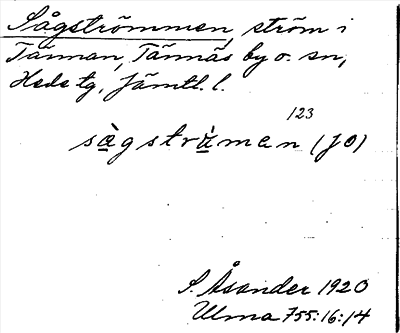 Sågströmmen, ström i
Tännan, Tännäs by o. sn,
Hede tg, Jämtl. l.
123
sàgstrὰmen (JO)
S. Åsander 1920
Ulma 755:16:14